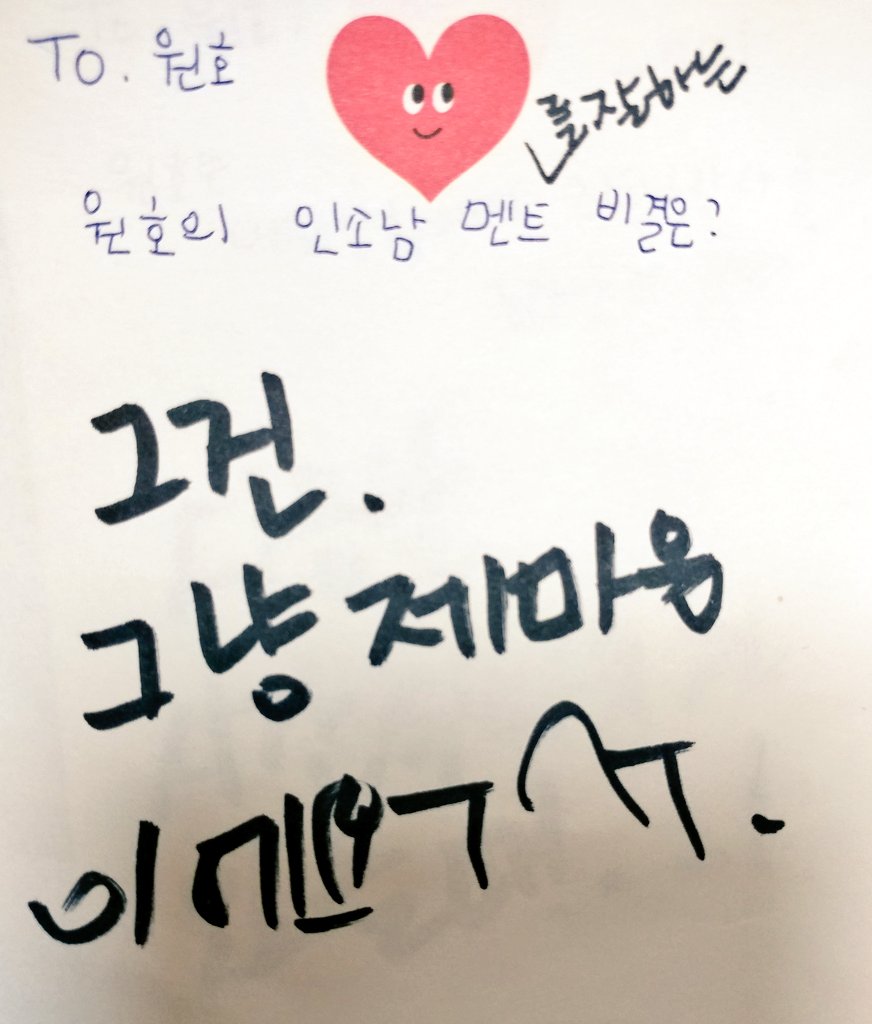 To. 원호
를잘하는
원호의 인소남 멘트 비결은?
그건.
그냥 제마음